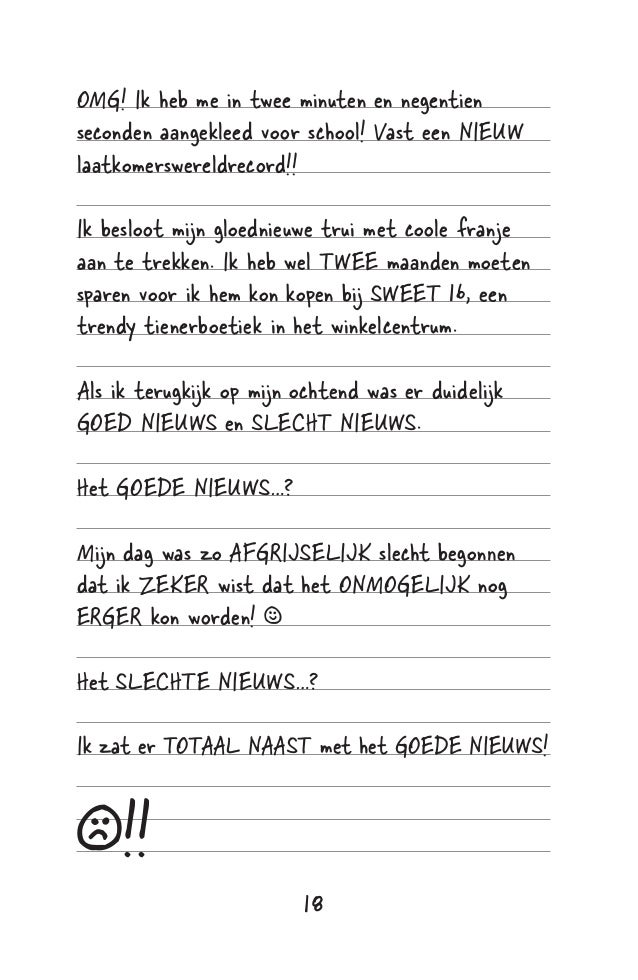 OMG! Ik heb me in twee minuten en negentien
seconden aangekleed voor school! Vast een NIEUW
laatkomerswereldrecord!!
Ik besloot mijn gloednieuwe trui met coole franje
aan te trekken. Ik heb wel TWEE maanden moeten
sparen voor ik hem kon kopen bij SWEET 16, een
trendy tienerboetiek in het winkelcentrum.
Als ik terugkijk op mijn ochtend was er duidelijk
GOED NIEUWS en SLECHT NIEUWS.
Het GOEDE NIEUWS...?
Mijn dag was zo AFGRIJSELIJK slecht begonnen
dat ik ZEKER wist dat het ONMOGELIJK nog
ERGER kon worden! ☺
Het SLECHTE NIEUWS...?
Ik zat er TOTAAL NAAST met het GOEDE NIEUWS!
☹!!
18